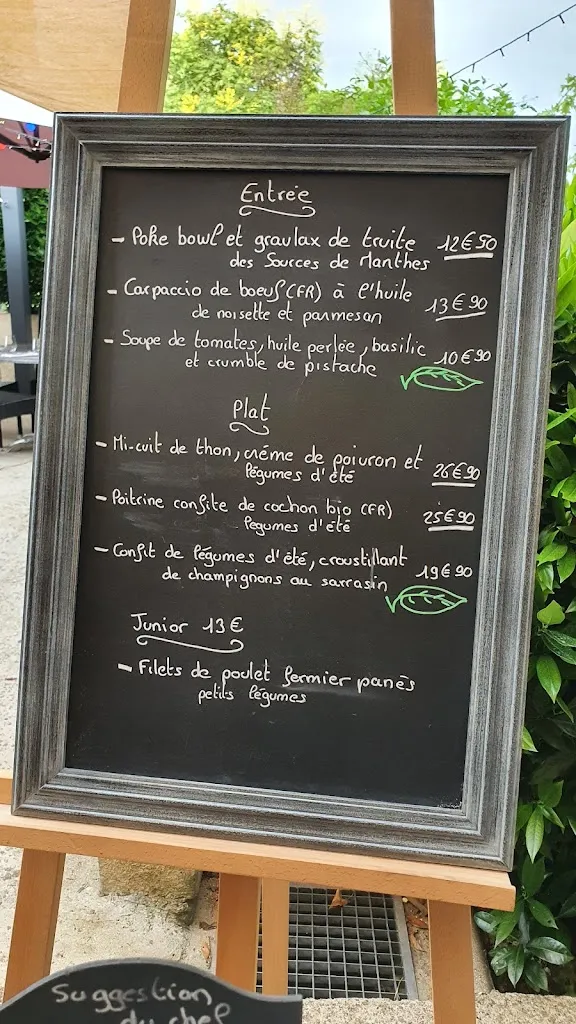 Entrée
- Poke bowl et gravlax de truite 12€50
des Sources de Manthes
- Carpaccio de boeuf (FR) à l'huile 13€90
de noisette et parmesan
- Soupe de tomates, huile perlée, basilic 10€90
et crumble de pistache
Plat
- Mi-cuit de thon, créme de poivron et 26€90
légumes d'été
- Poitrine confite de cochon bio (FR) 25€90
legumes d'été
- Confit de légumes d'été, croustillant 19€90
de champignons au sarrasin
Junior 13€
- Filets de poulet fermier panés
petits légumes
Suggestion
du chef